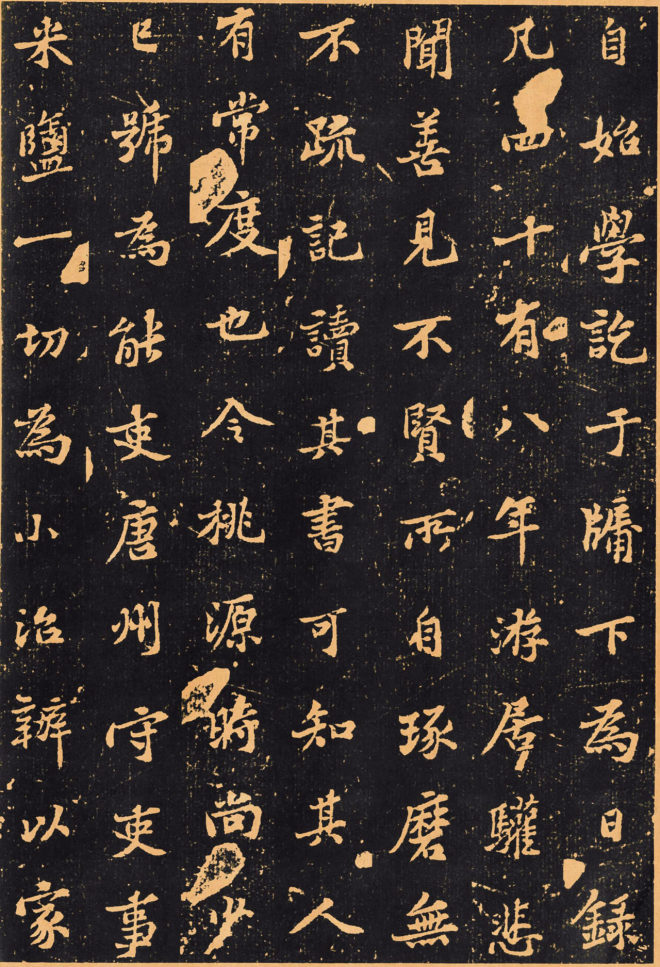 自始學訖于牖下為日録
凡四十有八年游居驩悲
聞善見不賢所自琢磨無
不疏記讀其書可知其人
有常度也令桃源時尚少
已號為能吏唐州守吏事
米鹽一切為小治辦以家